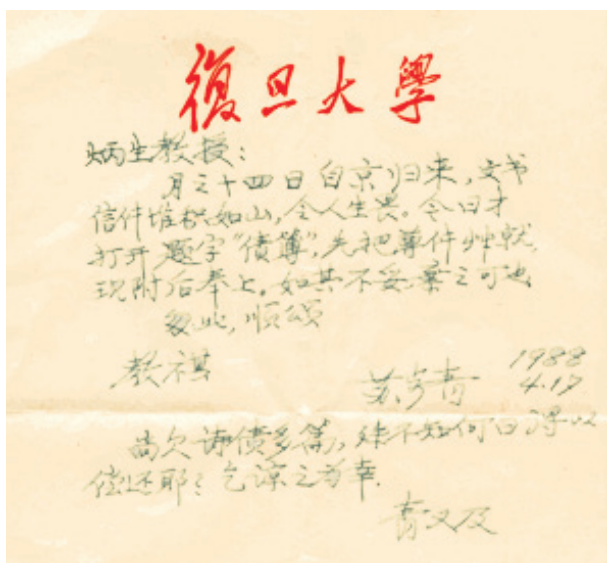 復旦大學
炳生教授：
月之十四日自京归来，文书
信件堆积如山，令人生畏。今日才
打开题字“债簿”，先把尊件抄就，
现附后奉上。如其不妥，弃之可也
致此，顺颂
教祺
苏步青 1988
4.17
尚欠诗债多篇，殊不知何日得以
偿还耶？乞谅之为幸．
青又及